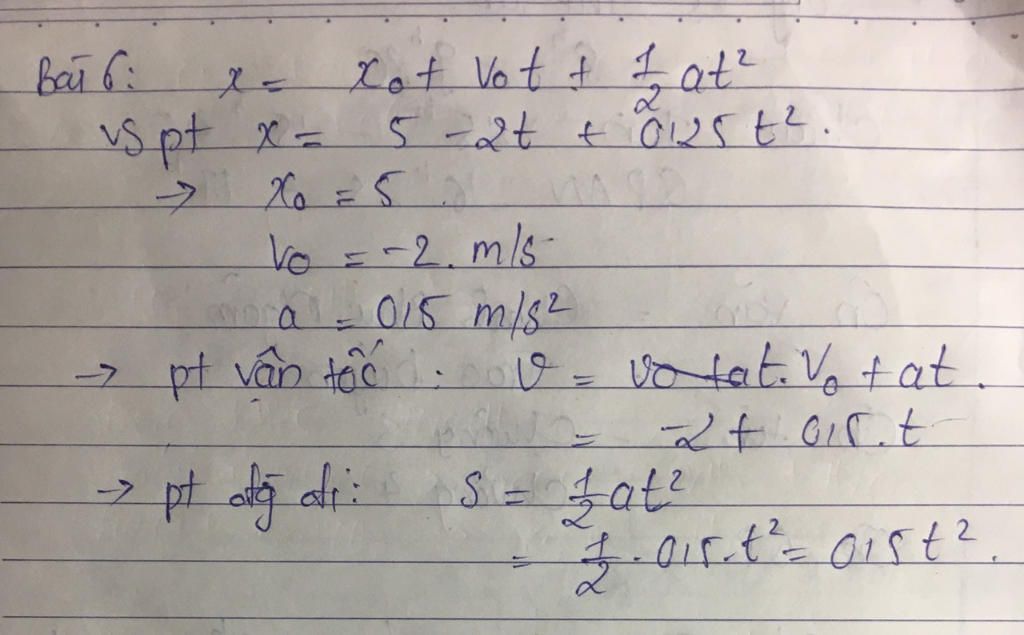 Bài 6: x = x₀ + v₀t + 1/2 at²
vs pt x = 5 - 2t + 0,25 t².
→ x₀ = 5
v₀ = -2. m/s
a = 0,5 m/s²
→ pt vận tốc : v = v₀ + at. V₀ + at.
= -2 + 0,5.t
→ pt đg đi: s = 1/2 at²
= 1/2 . 0,5.t² = 0,5t².